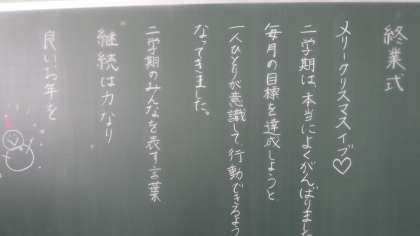 終業式
メリークリスマスイブ♡
二学期は、本当によくがんばりまし
毎月の目標を達成しようと
一人ひとりが意識して行動できるよう
なってきました。
二学期のみんなを表す言葉
継続は力なり
良いお年を